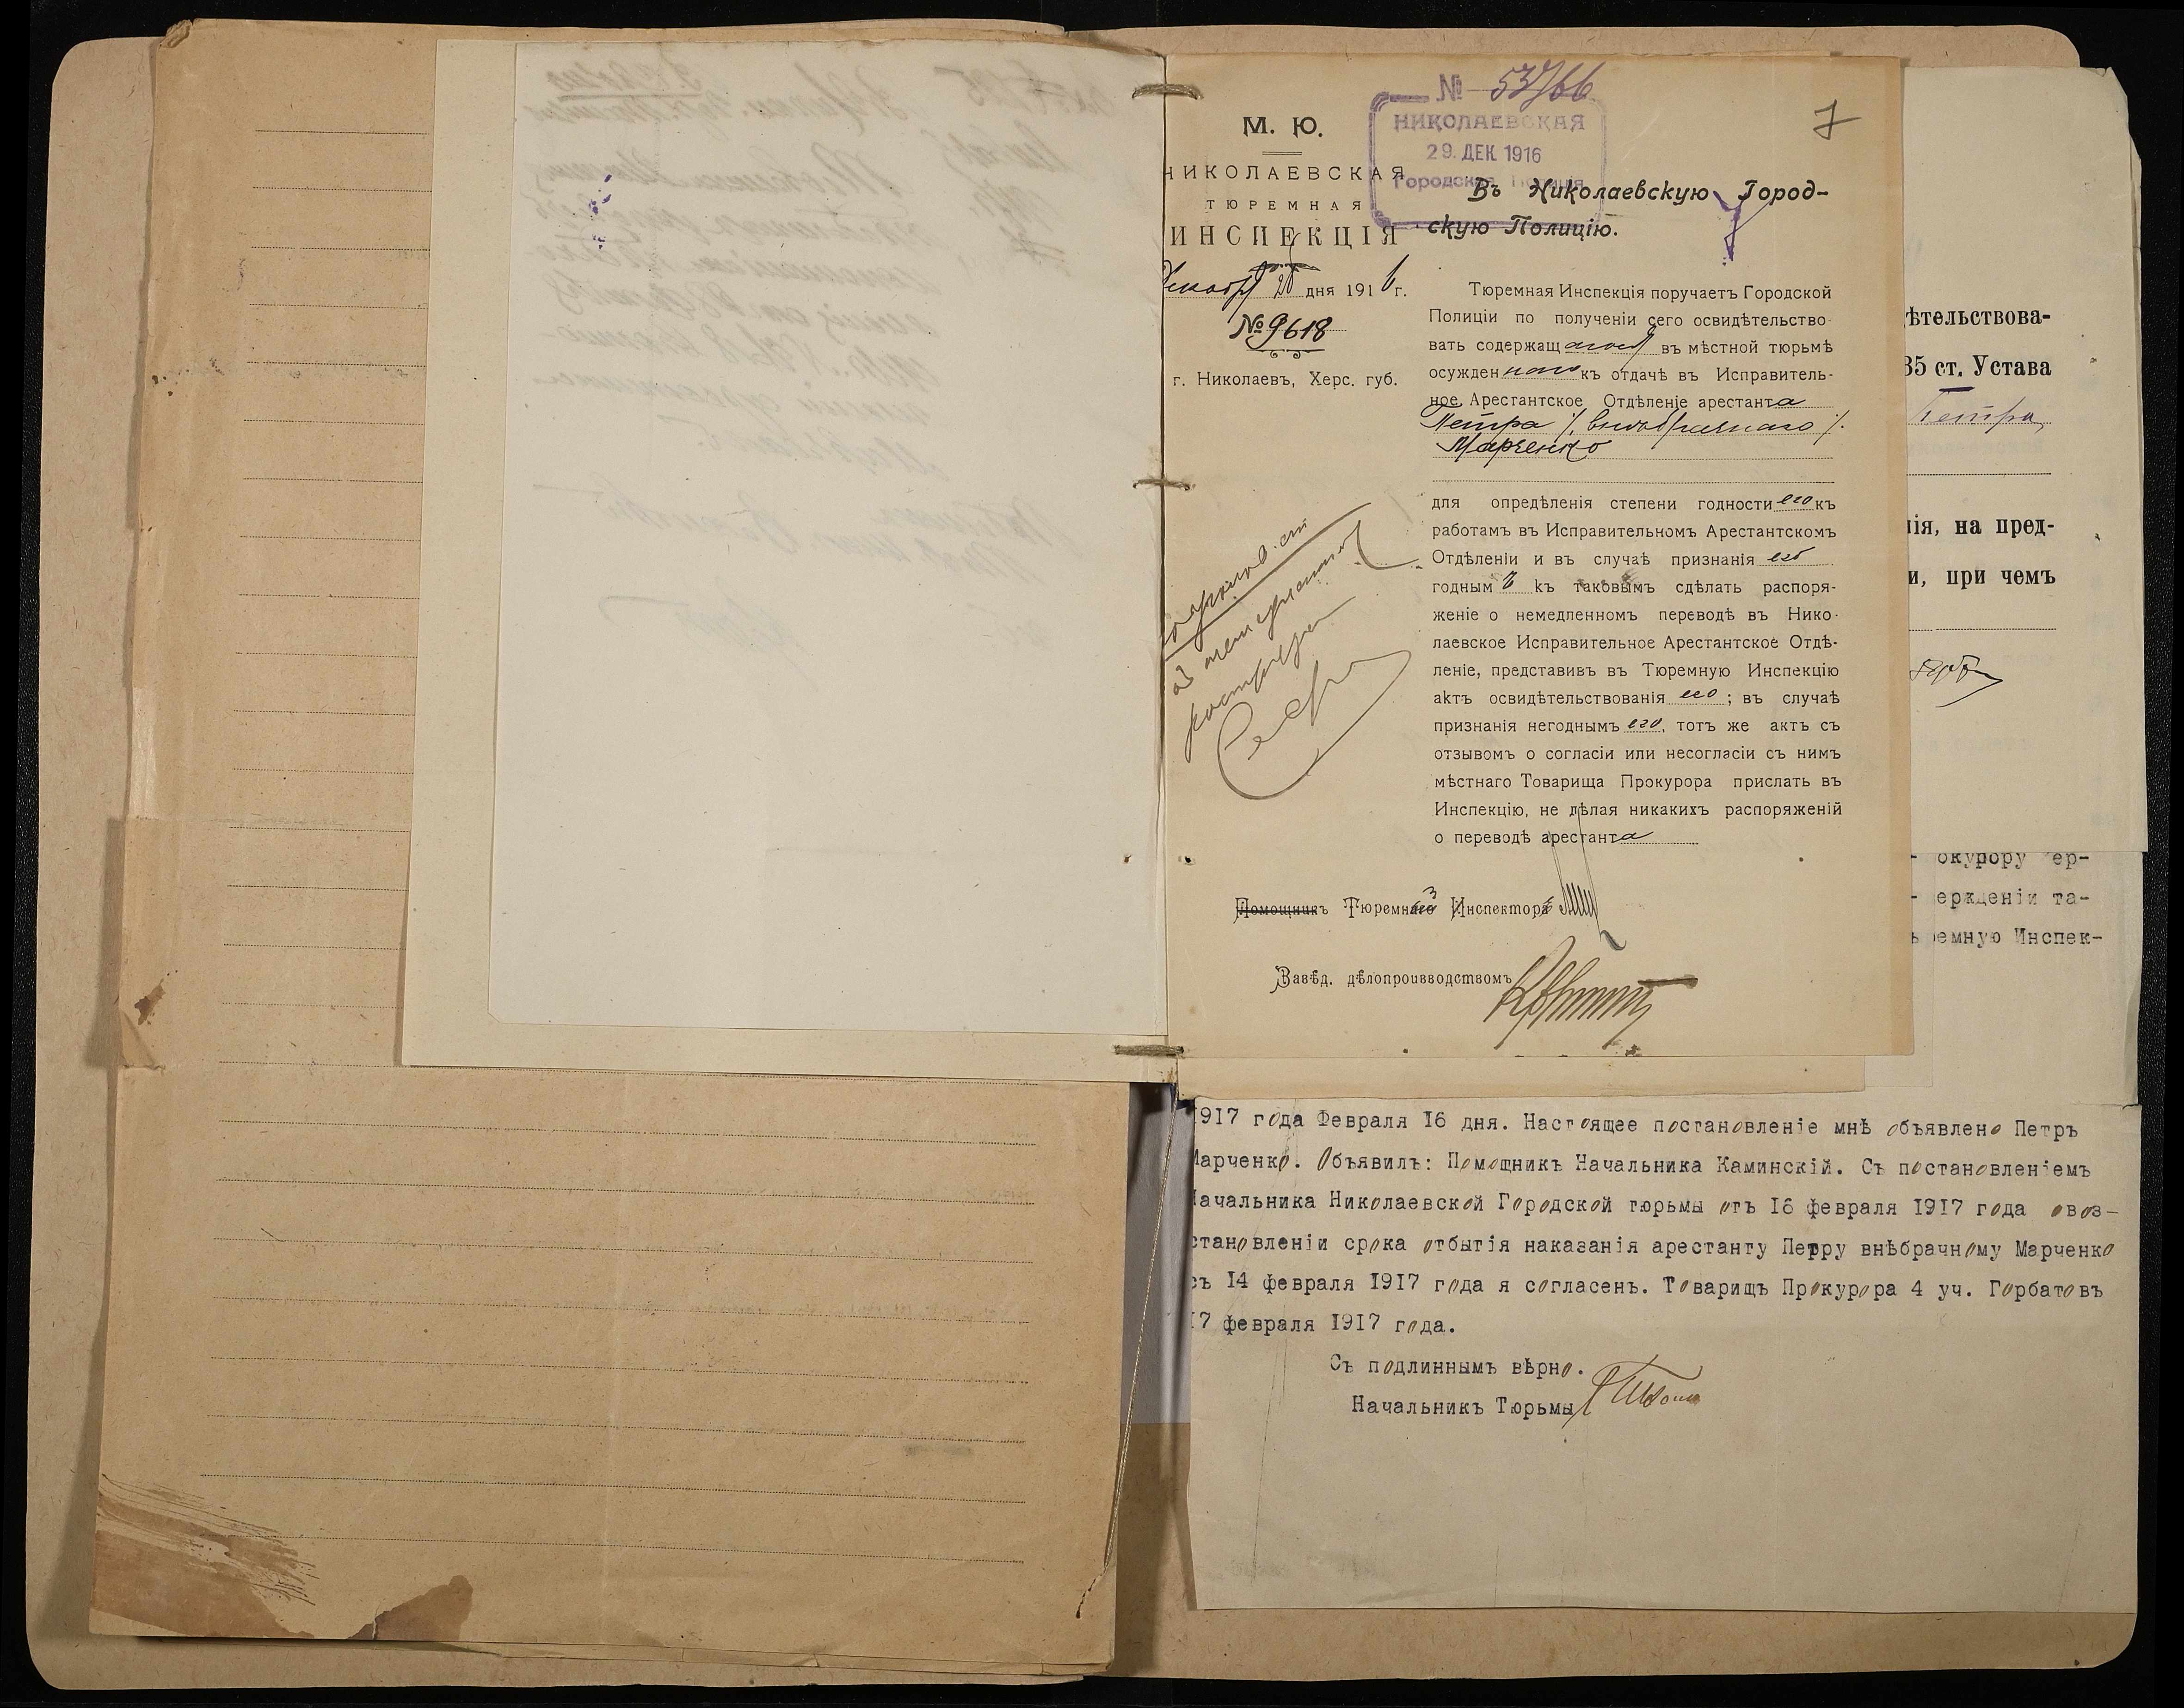 № 53766
НИКОЛАЕВСКАЯ
29. ДЕК 1916
Городская Полиція
7
М. Ю.
НИКОЛАЕВСКАЯ
ТЮРЕМНАЯ
ИНСПЕКЦІЯ
дня 1916 г.
№ 9618
г. Николаевъ, Херс. губ.
Въ Николаевскую Город-
скую Полицію.
Тюремная Инспекція поручаетъ Городской
Полиціи по полученіи сего освидѣтельство-
вать содержащагося въ мѣстной тюрьмѣ
осужденнаго къ отдачѣ въ Исправитель-
ное Арестантское Отдѣленіе арестанта
Петра /внѣбрачнаго/
Марченко
для опредѣленія степени годности его къ
работамъ въ Исправительномъ Арестантскомъ
Отдѣленіи и въ случаѣ признанія его
годнымъ къ таковымъ сдѣлать распоря-
женіе о немедленномъ переводѣ въ Нико-
лаевское Исправительное Арестантское Отдѣ-
леніе, представивъ въ Тюремную Инспекцію
актъ освидѣтельствованія его; въ случаѣ
признанія негоднымъ его, тотъ же актъ съ
отзывомъ о согласіи или несогласіи съ нимъ
мѣстнаго Товарища Прокурора прислать въ
Инспекцію, не дѣлая никакихъ распоряженій
о переводѣ арестанта
Помощникъ Тюремный Инспекторъ
Завѣд. дѣлопроизводствомъ
ѣтельствова-
35 ст. Устава
Петра,
нія, на пред-
и, при чемъ
окурору ер-
ержденіи та-
емную Инспек-
1917 года Февраля 16 дня. Настоящее постановленіе мнѣ объявлено Петръ
Марченко. Объявилъ: Помощникъ Начальника Каминскій. Съ постановленіемъ
Начальника Николаевской Городской тюрьмы отъ 16 февраля 1917 года овоз-
становленіи срока отбытія наказанія арестанту Петру внѣбрачному Марченко
съ 14 февраля 1917 года я согласенъ. Товарищъ Прокурора 4 уч. Горбатовъ
17 февраля 1917 года.
Съ подлиннымъ вѣрно.
Начальникъ Тюрьмы